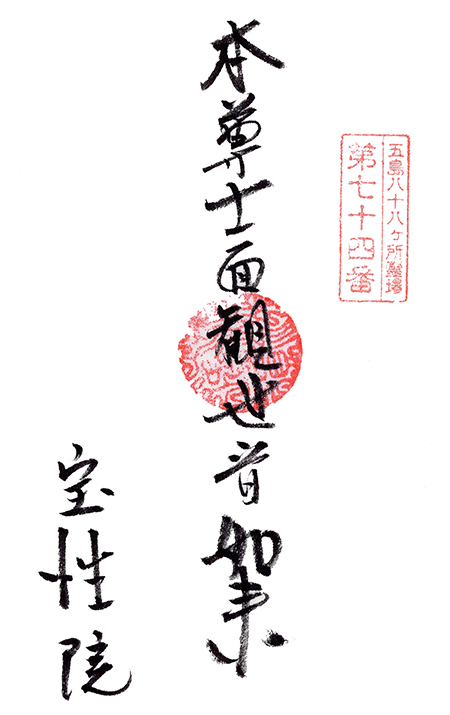 五島八十八ヶ所霊場
第七十四番
本尊十一面観世音如来
宝性院